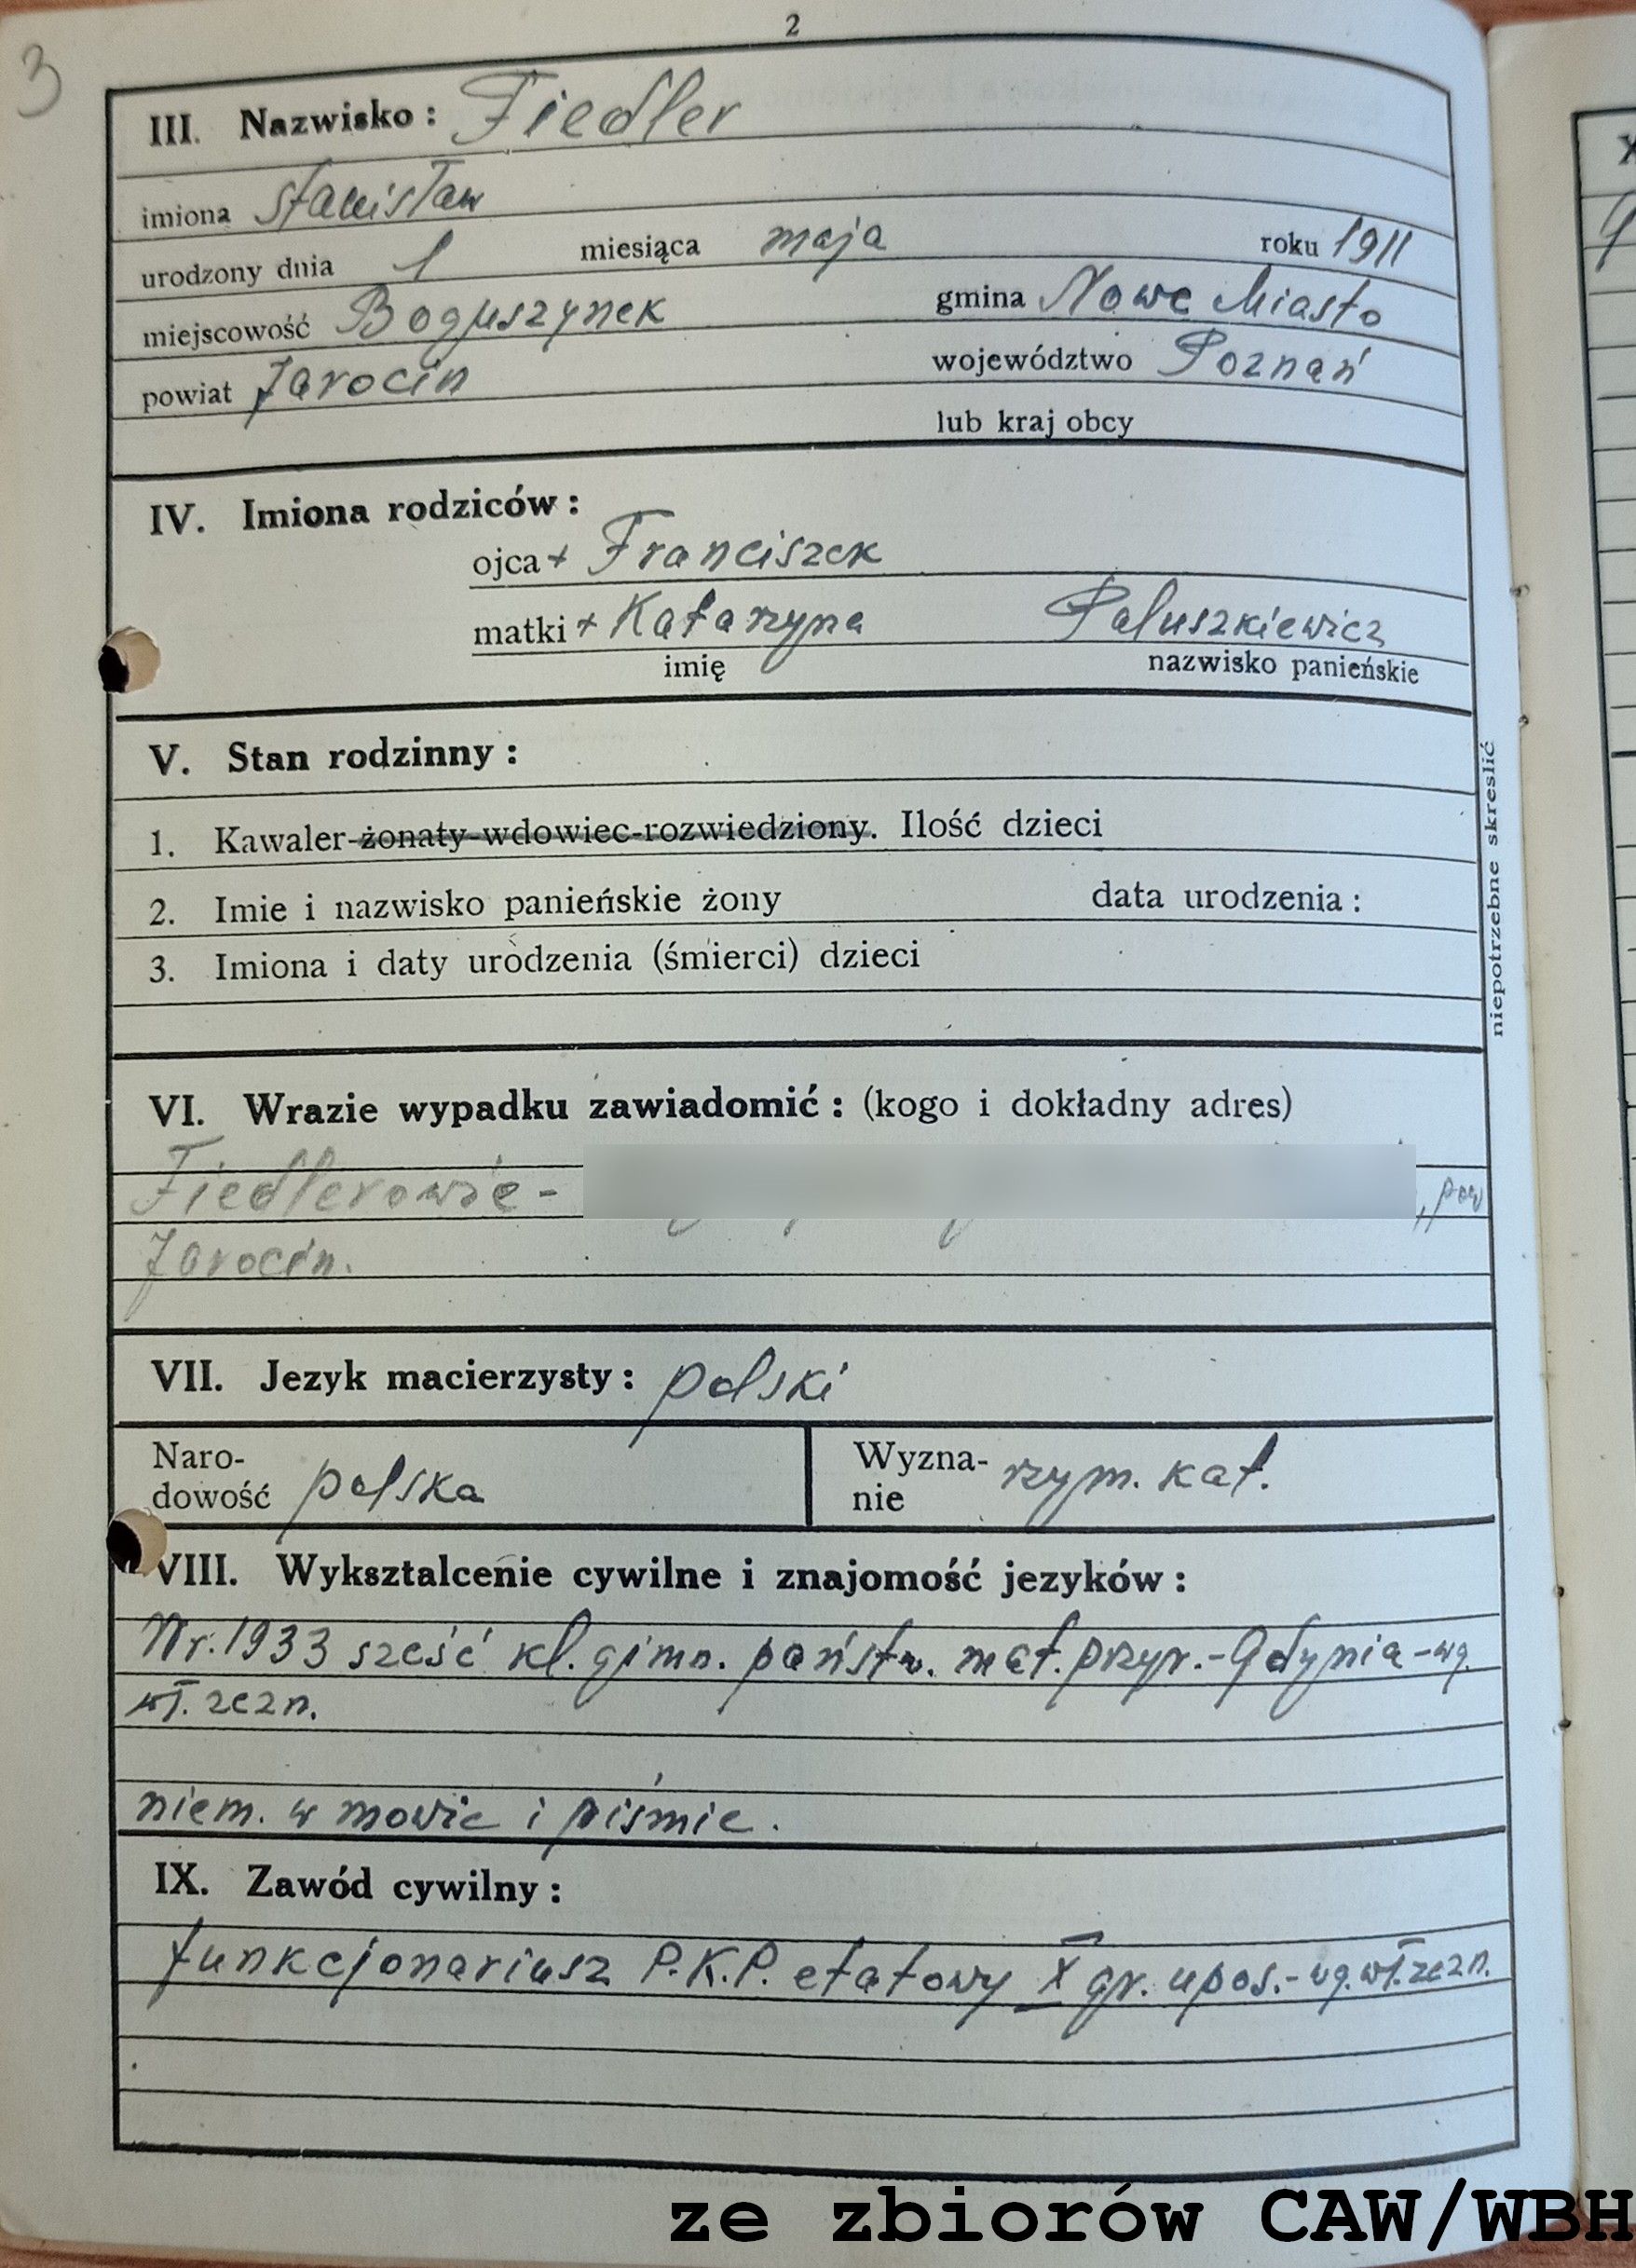 2
3
III. Nazwisko: Fiedler
imiona Stanisław
urodzony dnia 1 miesiąca maja roku 1911
miejscowość Boguszynek gmina Nowe Miasto
powiat Jarocin województwo Poznań
lub kraj obcy
IV. Imiona rodziców:
ojca + Franciszek
matki + Katarzyna Paluszkiewicz
imię nazwisko panieńskie
V. Stan rodzinny:
1. Kawaler-żonaty-wdowiec-rozwiedziony. Ilość dzieci
2. Imie i nazwisko panieńskie żony data urodzenia:
3. Imiona i daty urodzenia (śmierci) dzieci
niepotrzebne skreslić
VI. Wrazie wypadku zawiadomić: (kogo i dokładny adres)
Fiedlerowie - , pow
Jarocin.
VII. Jezyk macierzysty: polski
Naro- Wyzna-
dowość polska nie rzym. kat.
VIII. Wyksztalcenie cywilne i znajomość jezyków:
Nr. 1933 sześć kl. gimn. państw. mat. przyr. - Gdynia - wg.
wł. zezn.
niem. w mowie i piśmie.
IX. Zawód cywilny:
funkcjonariusz P.K.P. etatowy X gr. upos. - wg. wł. zezn.
ze zbiorów CAW/WBH